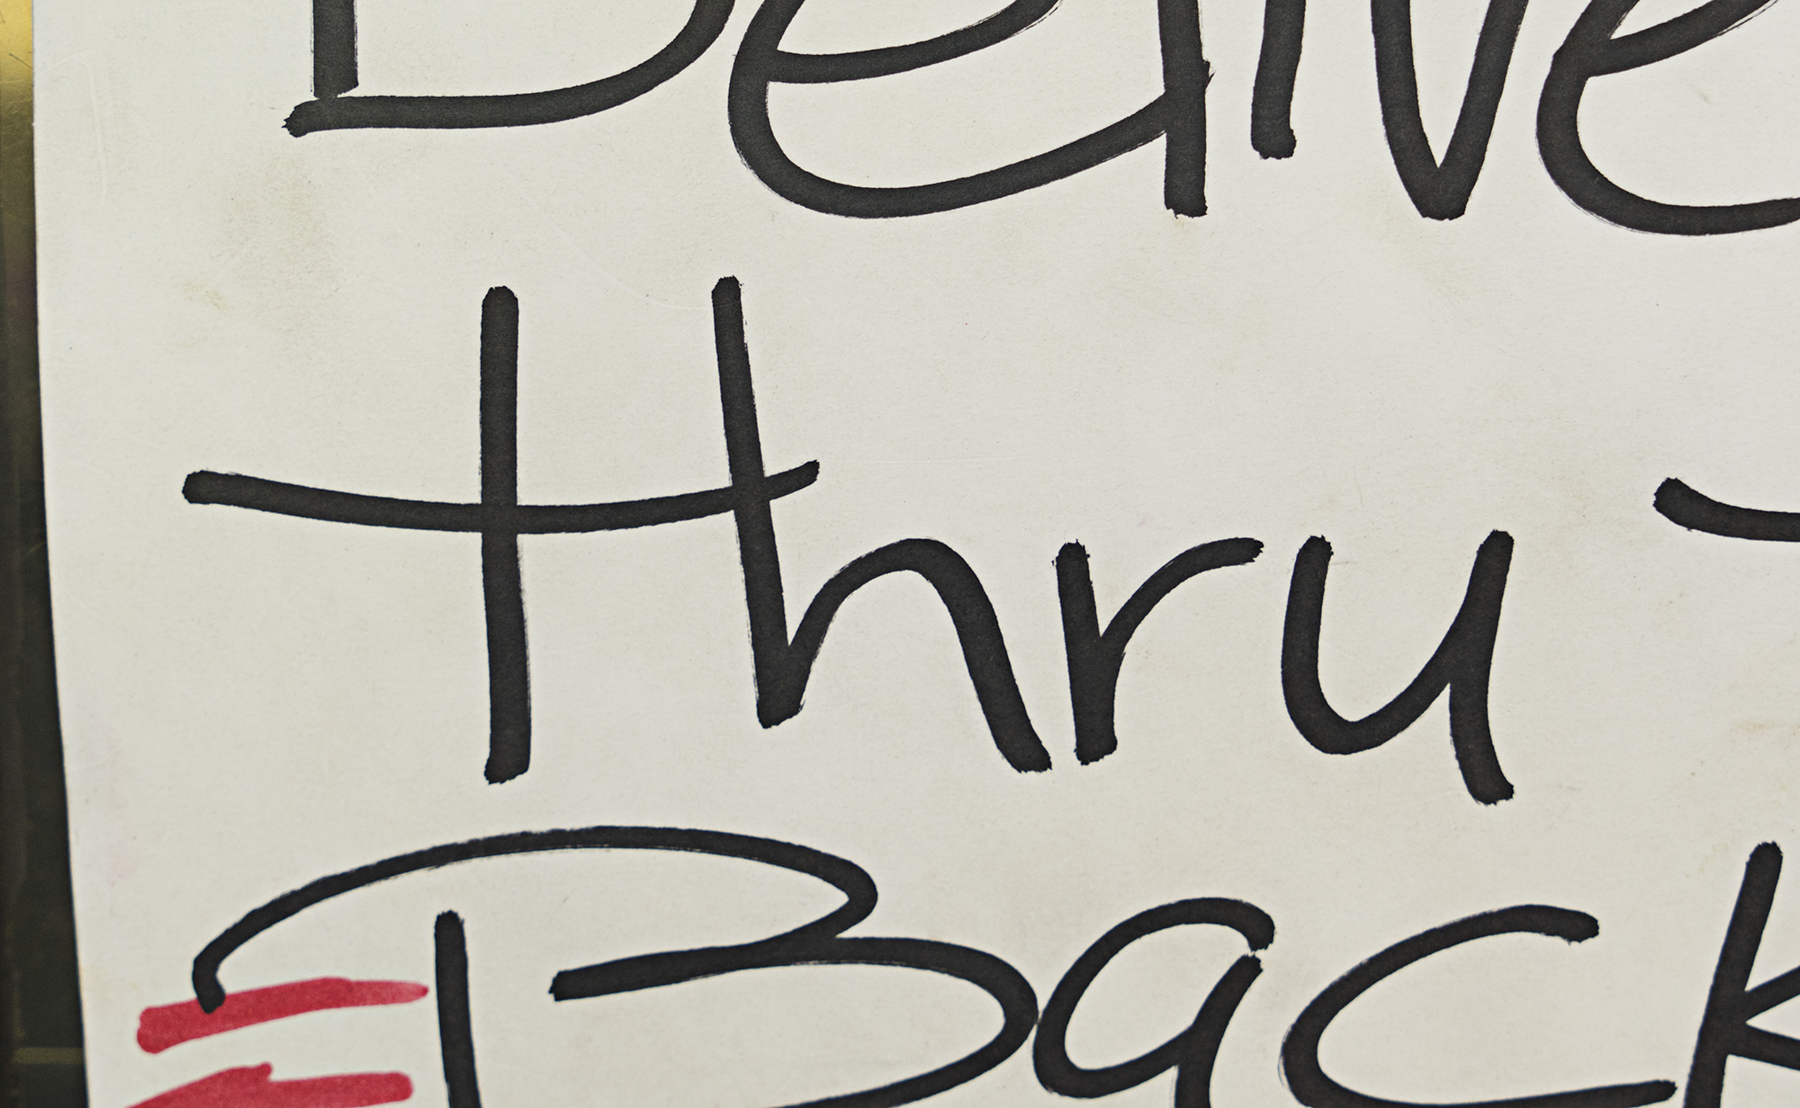 Delive
thru
Back